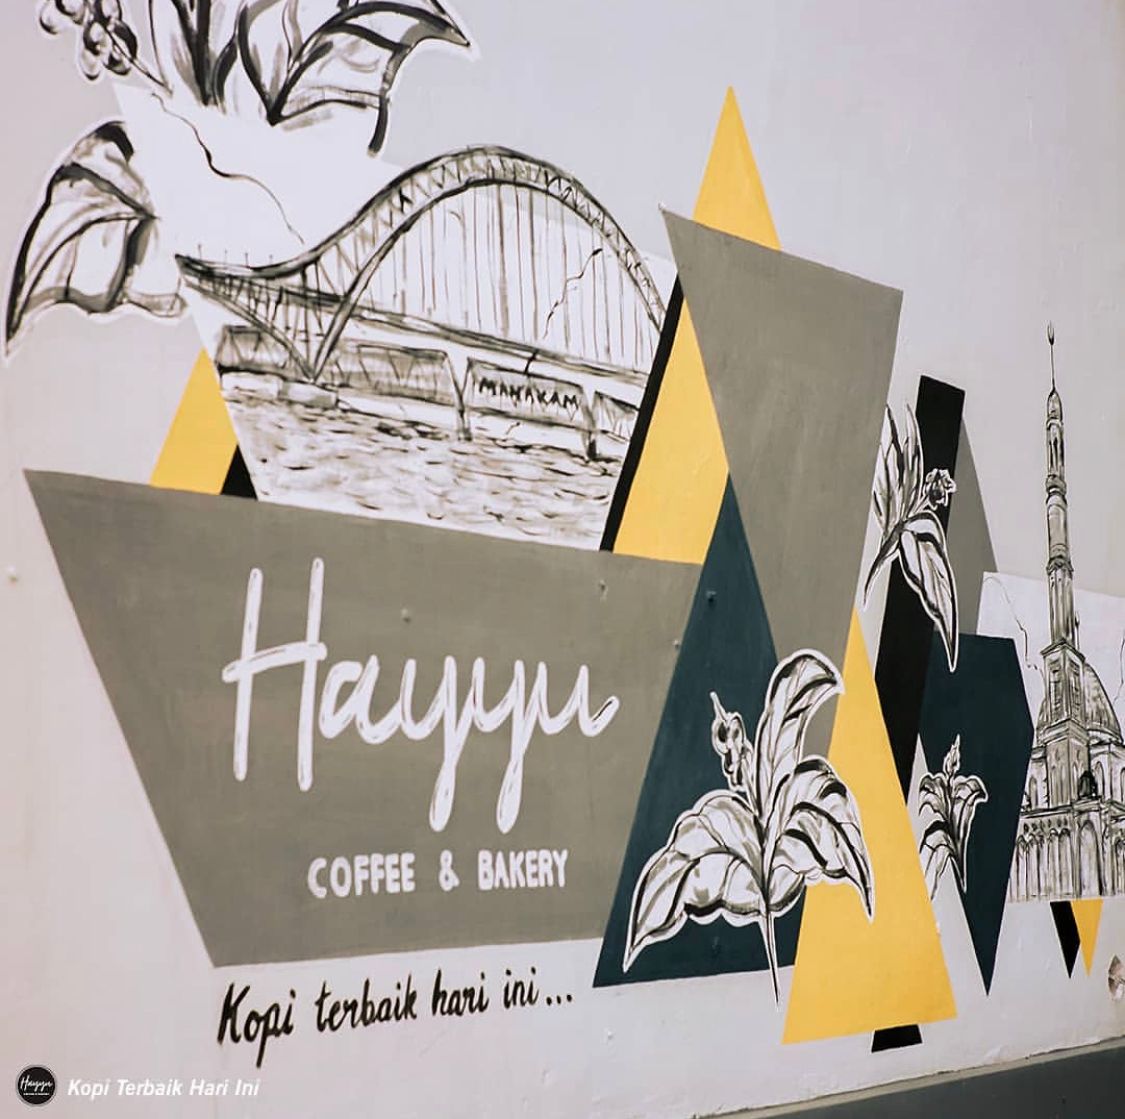 MAHAKAM
Hayyu
COFFEE & BAKERY
Kopi terbaik hari ini...
Hayyu
Kopi Terbaik Hari Ini